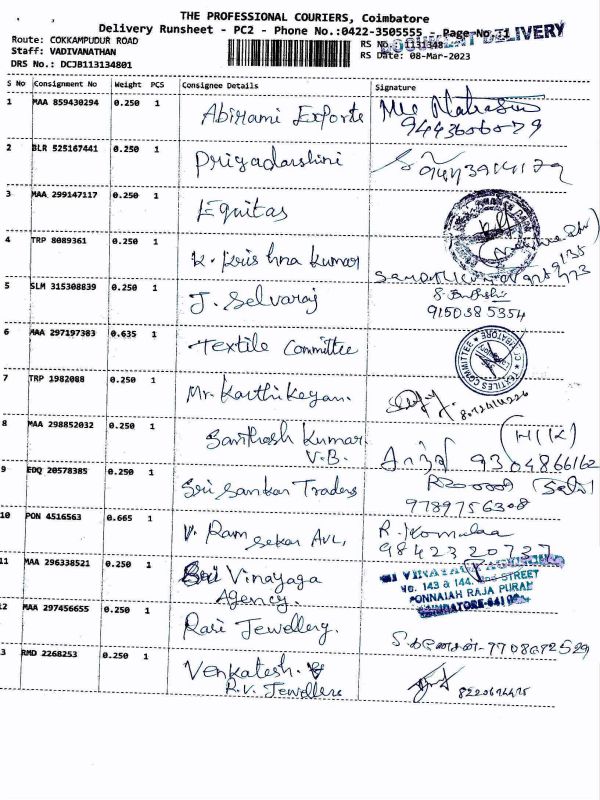 THE PROFESSIONAL COURIERS, Coimbatore
Delivery Runsheet - PC2 - Phone No.:0422-3505555 - Page No.:1
DOCUMENT DELIVERY
Route: COKKAMPUDUR ROAD
RS No. 1131348
Staff: VADIVANATHAN
RS Date: 08-Mar-2023
DRS No.: DCJB113134801
S No Consignment No Weight PCS Consignee Details Signature
1 MAA 859430294 0.250 1 Abirami Exports
9443606079
2 BLR 525167441 0.250 1 Priyadarshini
3 MAA 299147117 0.250 1 Equitas
4 TRP 8089361 0.250 1 K. Krishna Kumar
5 SLM 315308839 0.250 1 J. Selvaraj
9150385354
6 MAA 297197383 0.635 1 Textile Committee
TEXTILES COMMITTEE
7 TRP 1982088 0.250 1 Mr. Karthikeyan.
8 MAA 298852032 0.250 1 Santhosh Kumar
V.B.
9304866162
9 EDQ 20578385 0.250 1 Sri Sankar Traders
9789756308
10 PON 4516563 0.665 1 V. Ram
Sekar AVL,
R. Komalaa
9842320737
11 MAA 296338521 0.250 1 Sri Vinayaga
Agency.
No. 143 & 144, 2nd STREET
PONNAIAH RAJA PURAM
COIMBATORE-641001
12 MAA 297456655 0.250 1 Rasi Jewellery.
7708672529
13 RMD 2268253 0.250 1 Venkatesh.
R.V. Jewellers